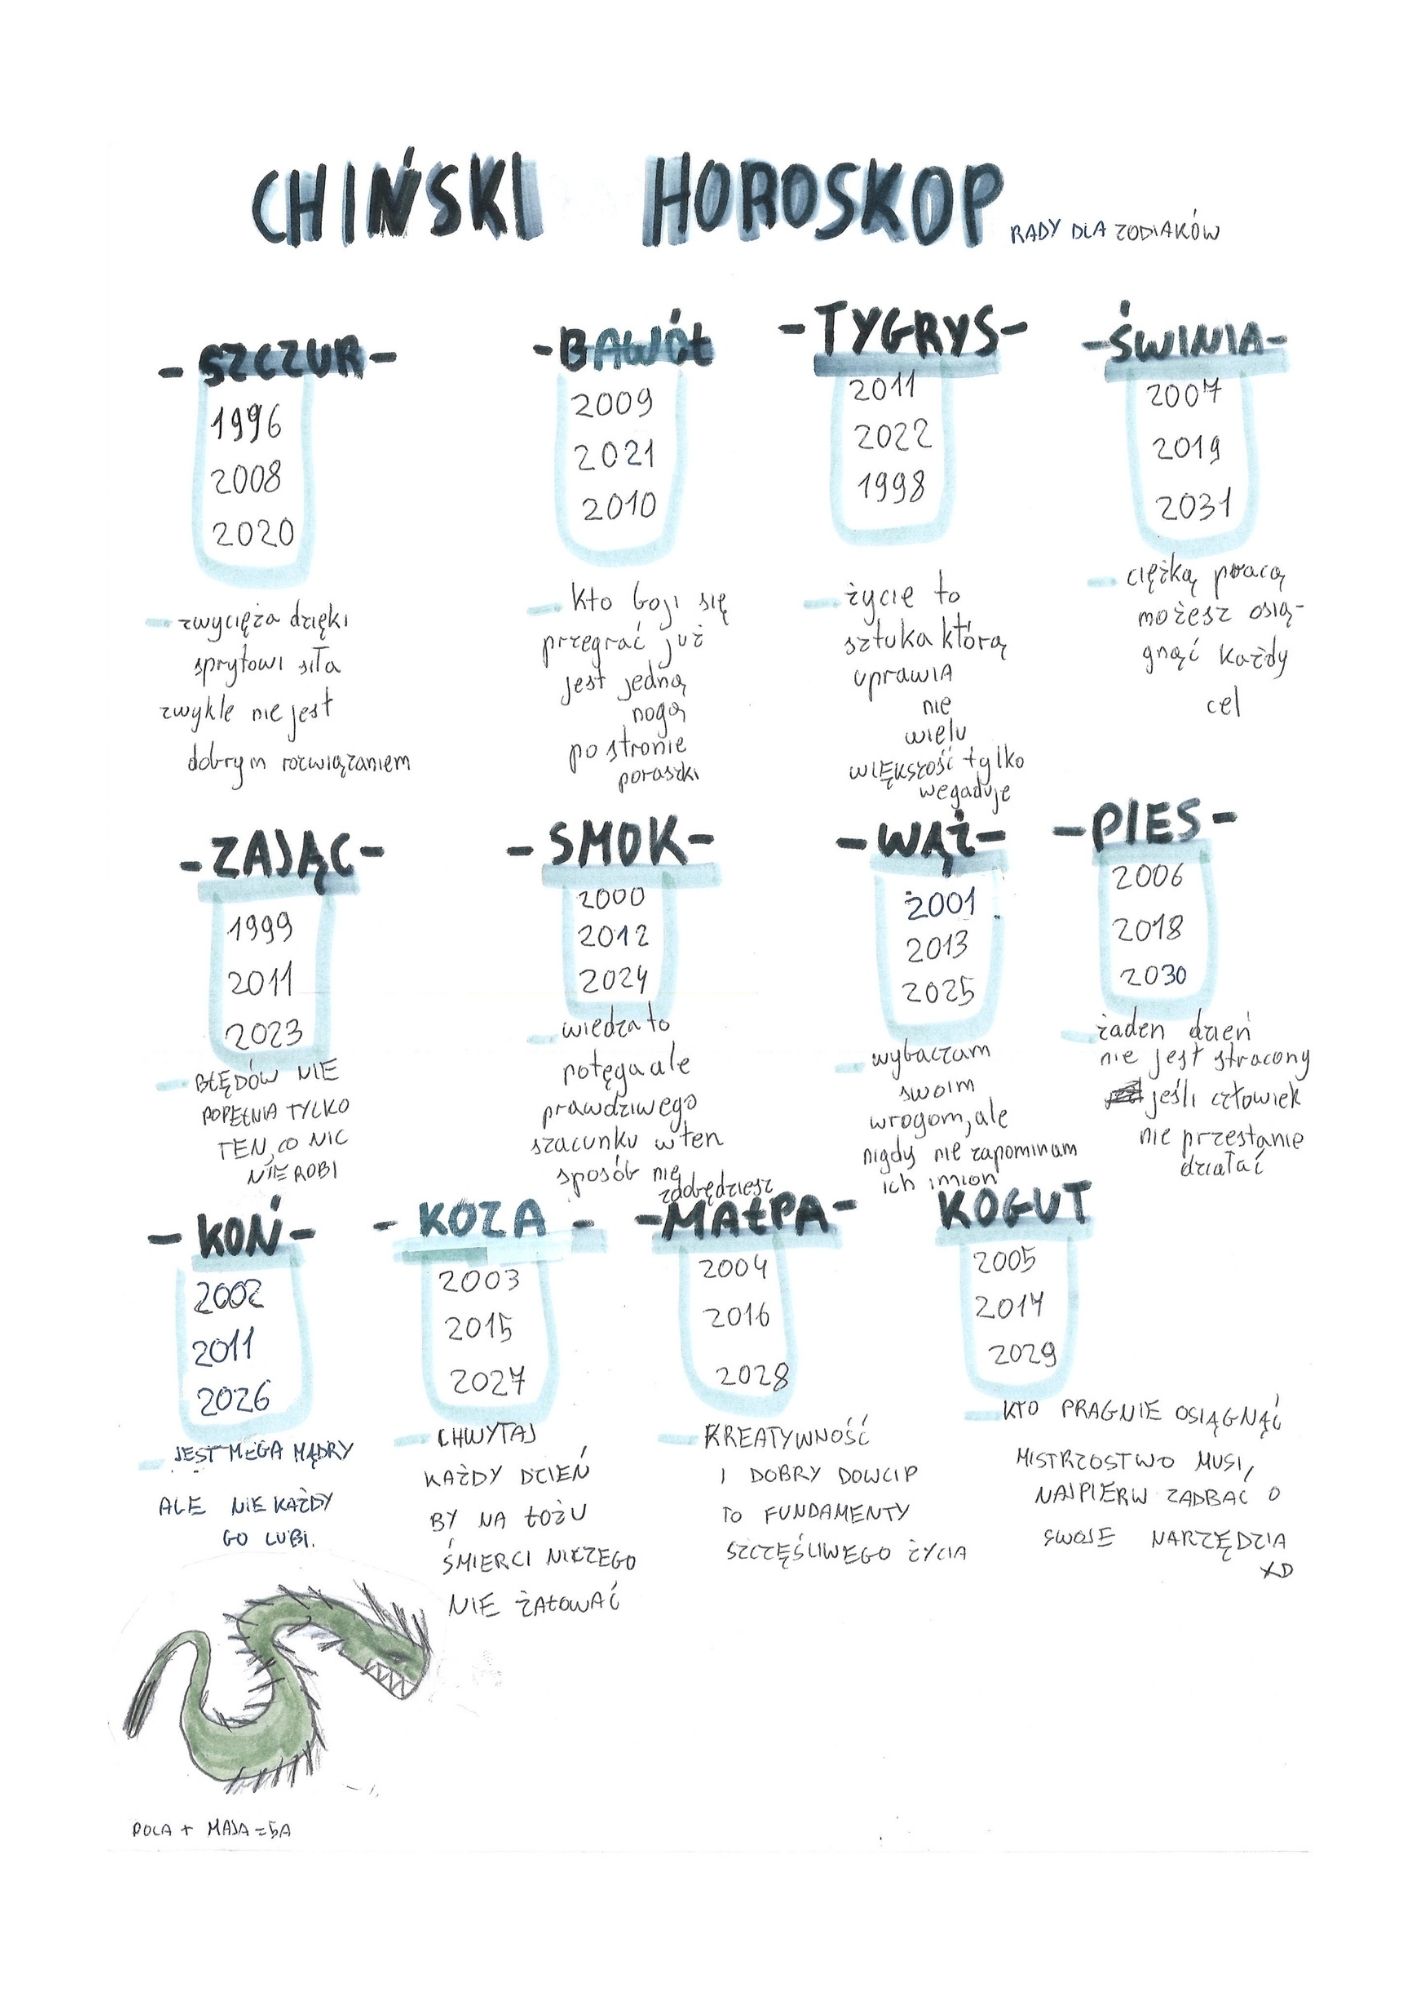 CHIŃSKI HOROSKOP
RADY DLA ZODIAKÓW
- SZCZUR -
1996
2008
2020
- zwycięża dzięki
sprytowi siła
zwykle nie jest
dobrym rozwiązaniem
- BAWÓŁ
2009
2021
2010
- kto boji się
przegrać już
jest jedną
nogą
po stronie
poraszki
- TYGRYS -
2011
2022
1998
- życie to
sztuka którą
uprawia
nie
wielu
większość tylko
wegaduje
- ŚWINIA -
2007
2019
2031
- ciężką pracą
możesz osią-
gnąć każdy
cel
- ZAJĄC -
1999
2011
2023
- BŁĘDÓW NIE
POPEŁNIA TYLKO
TEN, CO NIC
NIE ROBI
- SMOK -
2000
2012
2024
- wiedza to
potęga ale
prawdziwego
szacunku w ten
sposób nie
zdobędziesz
- WĄŻ -
2001
2013
2025
- wybaczam
swoim
wrogom, ale
nigdy nie zapominam
ich imion
- PIES -
2006
2018
2030
- żaden dzień
nie jest stracony
jeśli człowiek
nie przestanie
działać
- KOŃ -
2002
2011
2026
- JEST MEGA MĄDRY
ALE NIE KAŻDY
GO LUBI.
- KOZA -
2003
2015
2027
- CHWYTAJ
KAŻDY DZIEŃ
BY NA ŁOŻU
ŚMIERCI NICZEGO
NIE ŻAŁOWAĆ
- MAŁPA -
2004
2016
2028
- KREATYWNOŚĆ
I DOBRY DOWCIP
TO FUNDAMENTY
SZCZĘŚLIWEGO ŻYCIA
KOGUT
2005
2017
2029
- KTO PRAGNIE OSIĄGNĄĆ
MISTRZOSTWO MUSI,
NAJPIERW ZADBAĆ O
SWOJE NARZĘDZIA
XD
POLA + MAJA = 5A